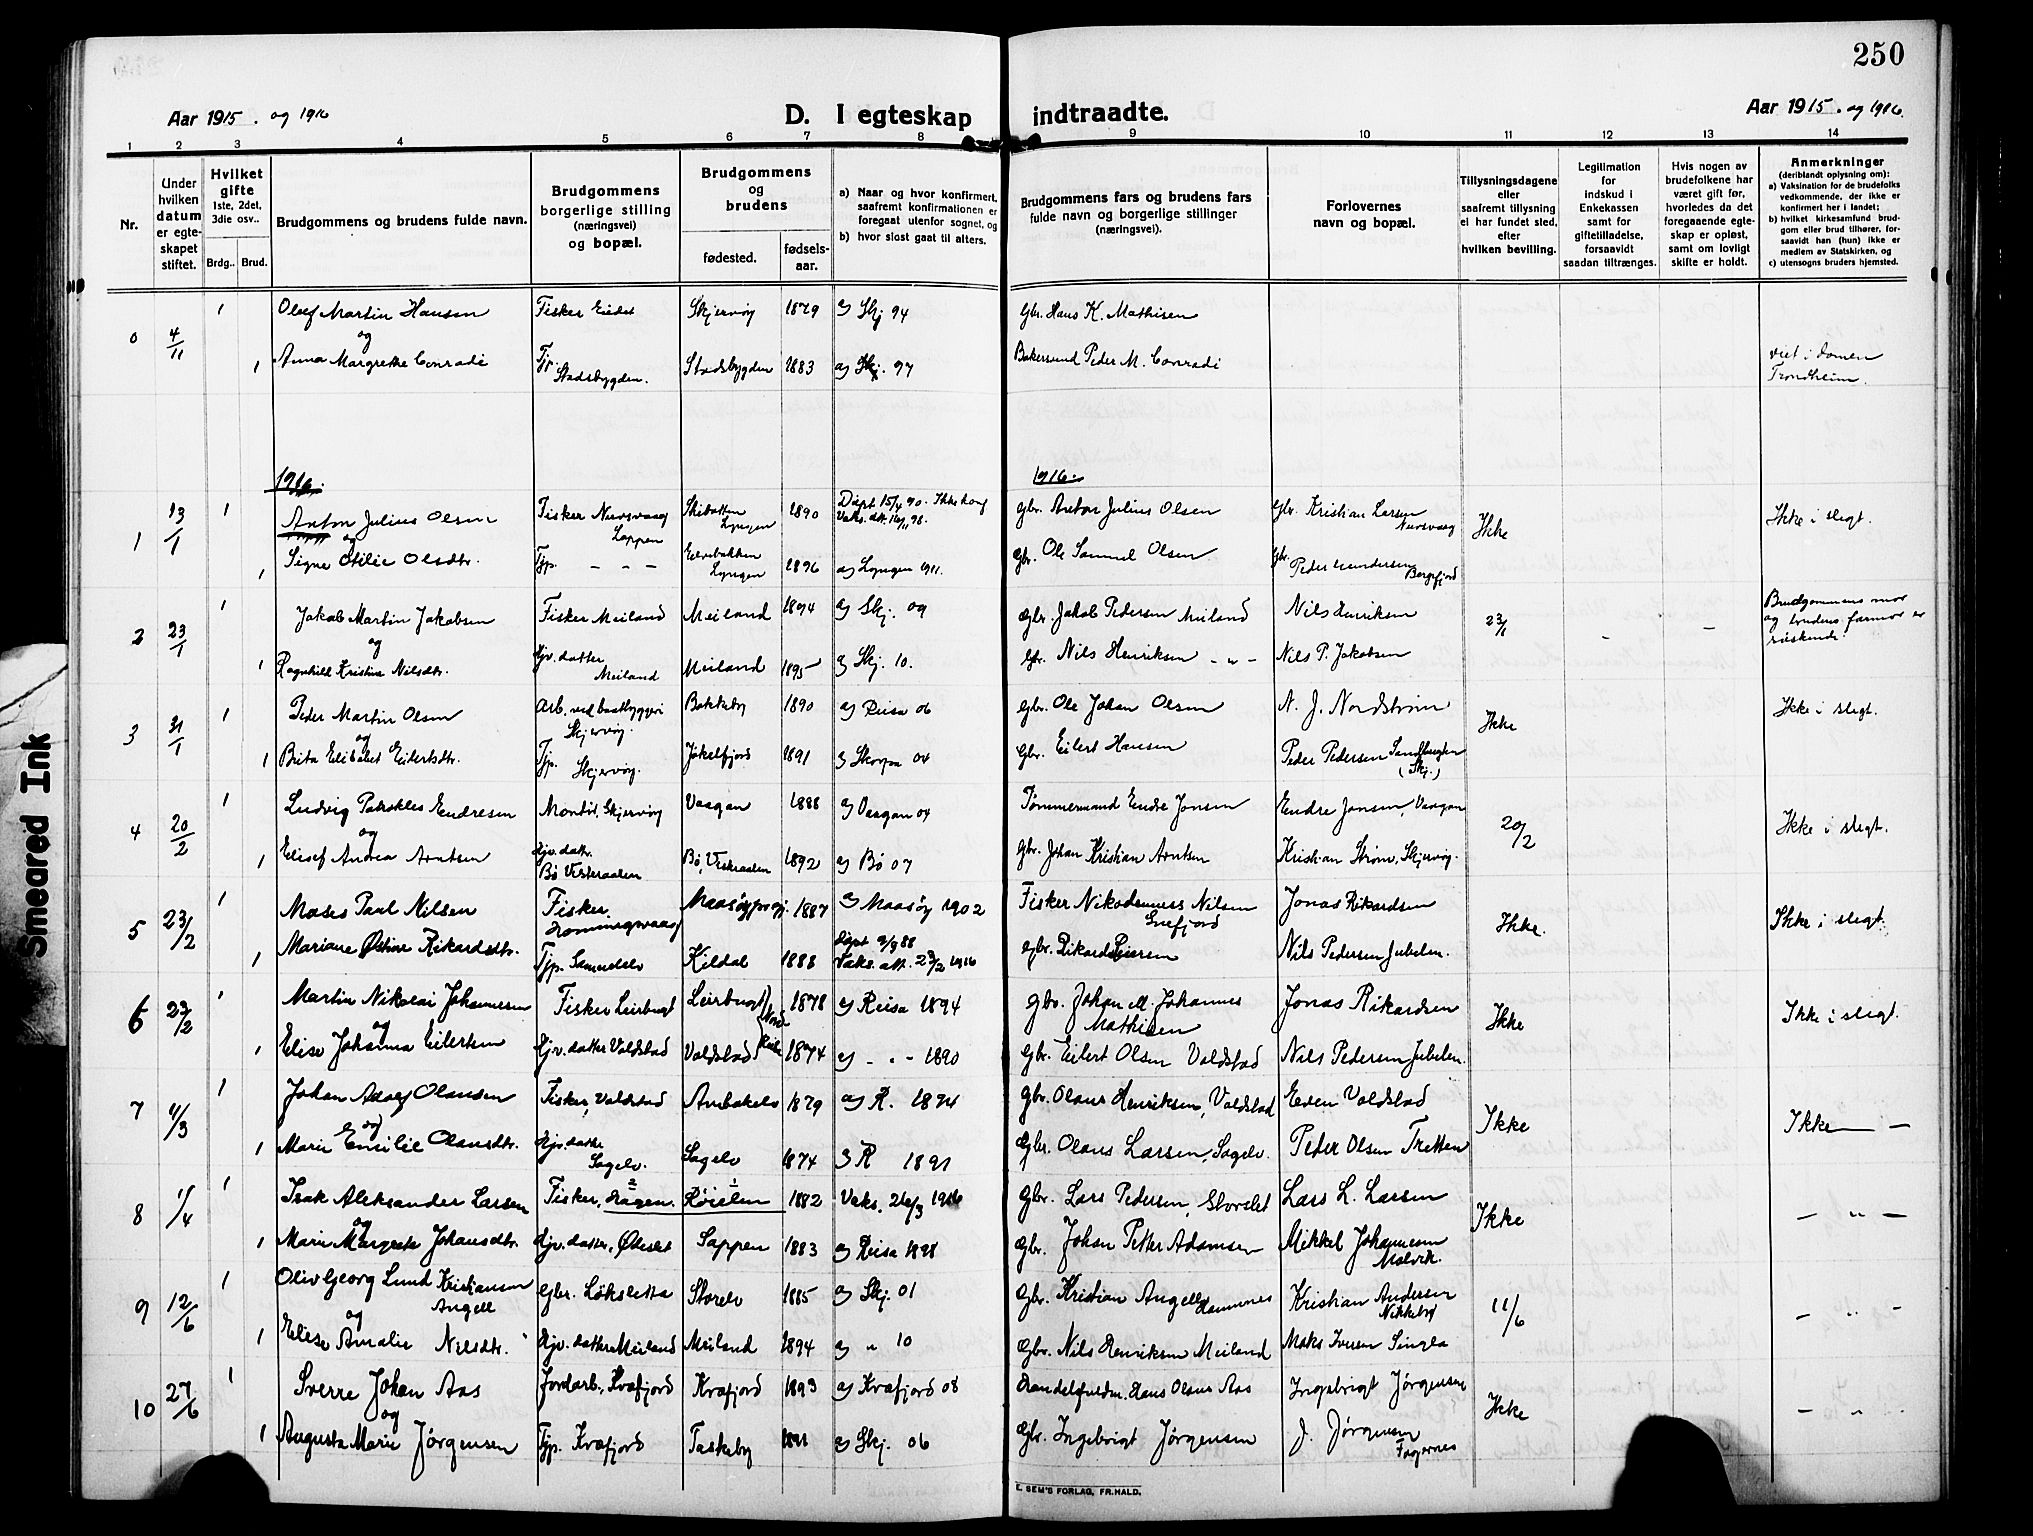 250
Aar 1915. og 1916
D. I egteskap indtraadte.
Aar 1915. og 1916.
1 2 3 4 5 6 7 8 9 10 11 12 13 14
Nr.
Under hvilken datum er egte-skapet stiftet.
Hvilket gifte 1ste, 2det, 3die osv..
Brdg.. Brud.
Brudgommens og brudens fulde navn.
Brudgommens borgerlige stilling (næringsvei) og bopæl.
Brudgommens og brudens
fødested.
fødsels-aar.
a) Naar og hvor konfirmert, saafremt konfirmationen er foregaat utenfor sognet, og
b) hvor sidst gaat til alters.
Brudgommens fars og brudens fars fulde navn og borgerlige stillinger (næringsvei).
Forlovernes navn og bopæl.
Tillysningsdagene eller saafremt tillysning ei har fundet sted, efter hvilken bevilling.
Legitimation for indskud i Enkekassen samt for giftetilladelse, forsaavidt saadan tiltrænges.
Hvis nogen av brudefolkene har været gift før, hvorledes da det foregaaende egte-skap er opløst, samt om lovligt skifte er holdt.
Anmerkninger (deriblandt oplysning om):
a) Vaksination for de brudefolks vedkommende, der ikke er konfirmert her i landet;
b) hvilket kirkesamfund brud-gom eller brud tilhører, for-saavidt han (hun) ikke er medlem av Statskirken, og
c) utensogns bruders hjemsted.
0 4/11 1 Olaf Martin Hansen Fisker Eidet Skjervøy 1879 a) Skj 94 Gbr. Hans K. Mathisen
og
1 Anna Margrethe Conradi Tjp. Stadsbygden. Stadsbygden 1883 a) Skj. 97 Peder M. Conradi viet i domen Trondheim.
1916. 1916.
1 13/1 1 Anton Julius Olsen Fisker Nuvsvaag Loppen Skibotten Lyngen 1890 Døpt 15/4 90. Ikke konf Vaks. att. 16/11 96. Gbr. Anton Julius Olsen Gbr. Kristian Larsen Nuvsvaag Ikke Ikke i slegt.
og
1 Signe Otilie Olsdtr. Tjp. – – – Elvebakken Lyngen 1896 a) Lyngen 1911. Gbr. Ole Samuel Olsen Gbr. Peder Bergsfjord
2 23/1 1 Jakob Martin Jakobsen Fisker Meiland Meiland 1894 a) Skj. 09 Gbr. Jakob Pedersen Meiland Nils Henriksen 23/1 – – Brudgommens mor og brudens farmor er søskende.
og
1 Ragnhild Kristine Nilsdtr. Gjv. datter Meiland Meiland 1895 a) Skj. 10. Gbr. Nils Henriksen – " – Nils P. Jakobsen
3 31/1 1 Peder Martin Olsen Arb. ved baatbyggeri Skjervøy. Bakkeby 1890 a) Reisa 06 Gbr. Ole Johan Olsen N. J. Nordstrøm Ikke Ikke i slegt.
og
1 Brita Elisabet Eilertsdtr. Tjp. Skjervøy. Jøkelfjord 1891 a) Skorpa 04 Gbr. Eilert Hansen Peder Pedersen (Skj.)
4 20/2 1 Ludvig Patrokles Endresen Montør, Skjervøy Vaagan 1888 a) Vaagan 04 Tømmermand Endre Jonsen Endre Jonsen, Vaagan 20/2 Ikke i slegt.
og
1 Elisef Andrea Arntsen Gjv. datr. Bø Vesteraalen Bø, Vesteraalen 1892 a) Bø 07 Gbr. Johan Kristian Arntsen Kristian Strøm, Skjervøy.
5 23/2 1 Moses Paul Nilsen Fisker. Maasøy prgj. 1887 a) Maasøy 1902 Fisker Nikodemus Nilsen Snefjord Jonas Rikardsen Ikke. Ikke i slegt.
1 Mariane Østine Rikardsdtr. Tjp. Samuelelv Kildal 1888 Døpt 2/9 88 Vaks. att. 23/2 1916 Gbr. Rikard Nils Pedersen Jubelen.
6 23/2 1 Martin Nikolai Johannesen Fisker Leirbugt Leirbugt 1878 a) Reisa 1894 Gbr. Johan M. Johannes Mathisen Jonas Rikardsen Ikke Ikke i slegt.
og Nord Reisa
1 Elise Johanna Eilertsen Gjv. datter Valdstad Valdstad 1874 a) – " – 1890 Gbr. Eilert Olsen Valdstad Nils Pedersen Jubelen.
7 4/3 1 Johan Adolf Olausen Fisker, Valdstad 1879 a) R. 1894 Gbr. Olaus Henriksen, Valdstad Even Valdstad Ikke Ikke – –
og
1 Marie Emilie Olausdtr. Gjv. datter Sagelv. Sagelv 1874 a) R 1891 Gbr. Olaus Larsen, Sagelv. Peder Olsen Tretten
8 1/4 1 Isak Aleksander Larsen Fisker, Hagen. Røielen 1882 Vaks. 26/3 1916 Gbr. Lars Pedersen, Storslet Lars L. Larsen Ikke – " –
og
1 Marie Margrete Johansdtr. Gjv. datter, Ødeslet Sappen 1883 a) Reisa 1898 Gbr. Johan Petter Adamsen Mikkel Johannesen
9 12/6 1 Oliv Georg Lund Kristiansen Angell Gbr. Løksletta Storelv 1885 a) Skj. 01 Gbr. Kristian Angell Hamnnes Kristian Andersen Nikkeby 11/6 – " –
og
1 Elise Amalie Nilsdtr. Gjv. datter Meiland Meiland 1894 a) " 10 Gbr. Nils Henriksen Meiland Maks Iversen Singla
10 27/6 1 Sverre Johan Aas Jordarb., Kvæfjord Kvæfjord 1893 a) Kvæfjord 08 Handelsfuldm. Hans Olsen Aas Ingebrigt Jørgensen Ikke – " –
og
1 Augusta Marie Jørgensen Tjp. Kvæfjord Taskeby 1891 a) Skj. 06 Gbr. Ingebrigt Jørgensen J. Jørgensen Fagernes
E. SEM'S FORLAG, FR.HALD.
Smeared Ink